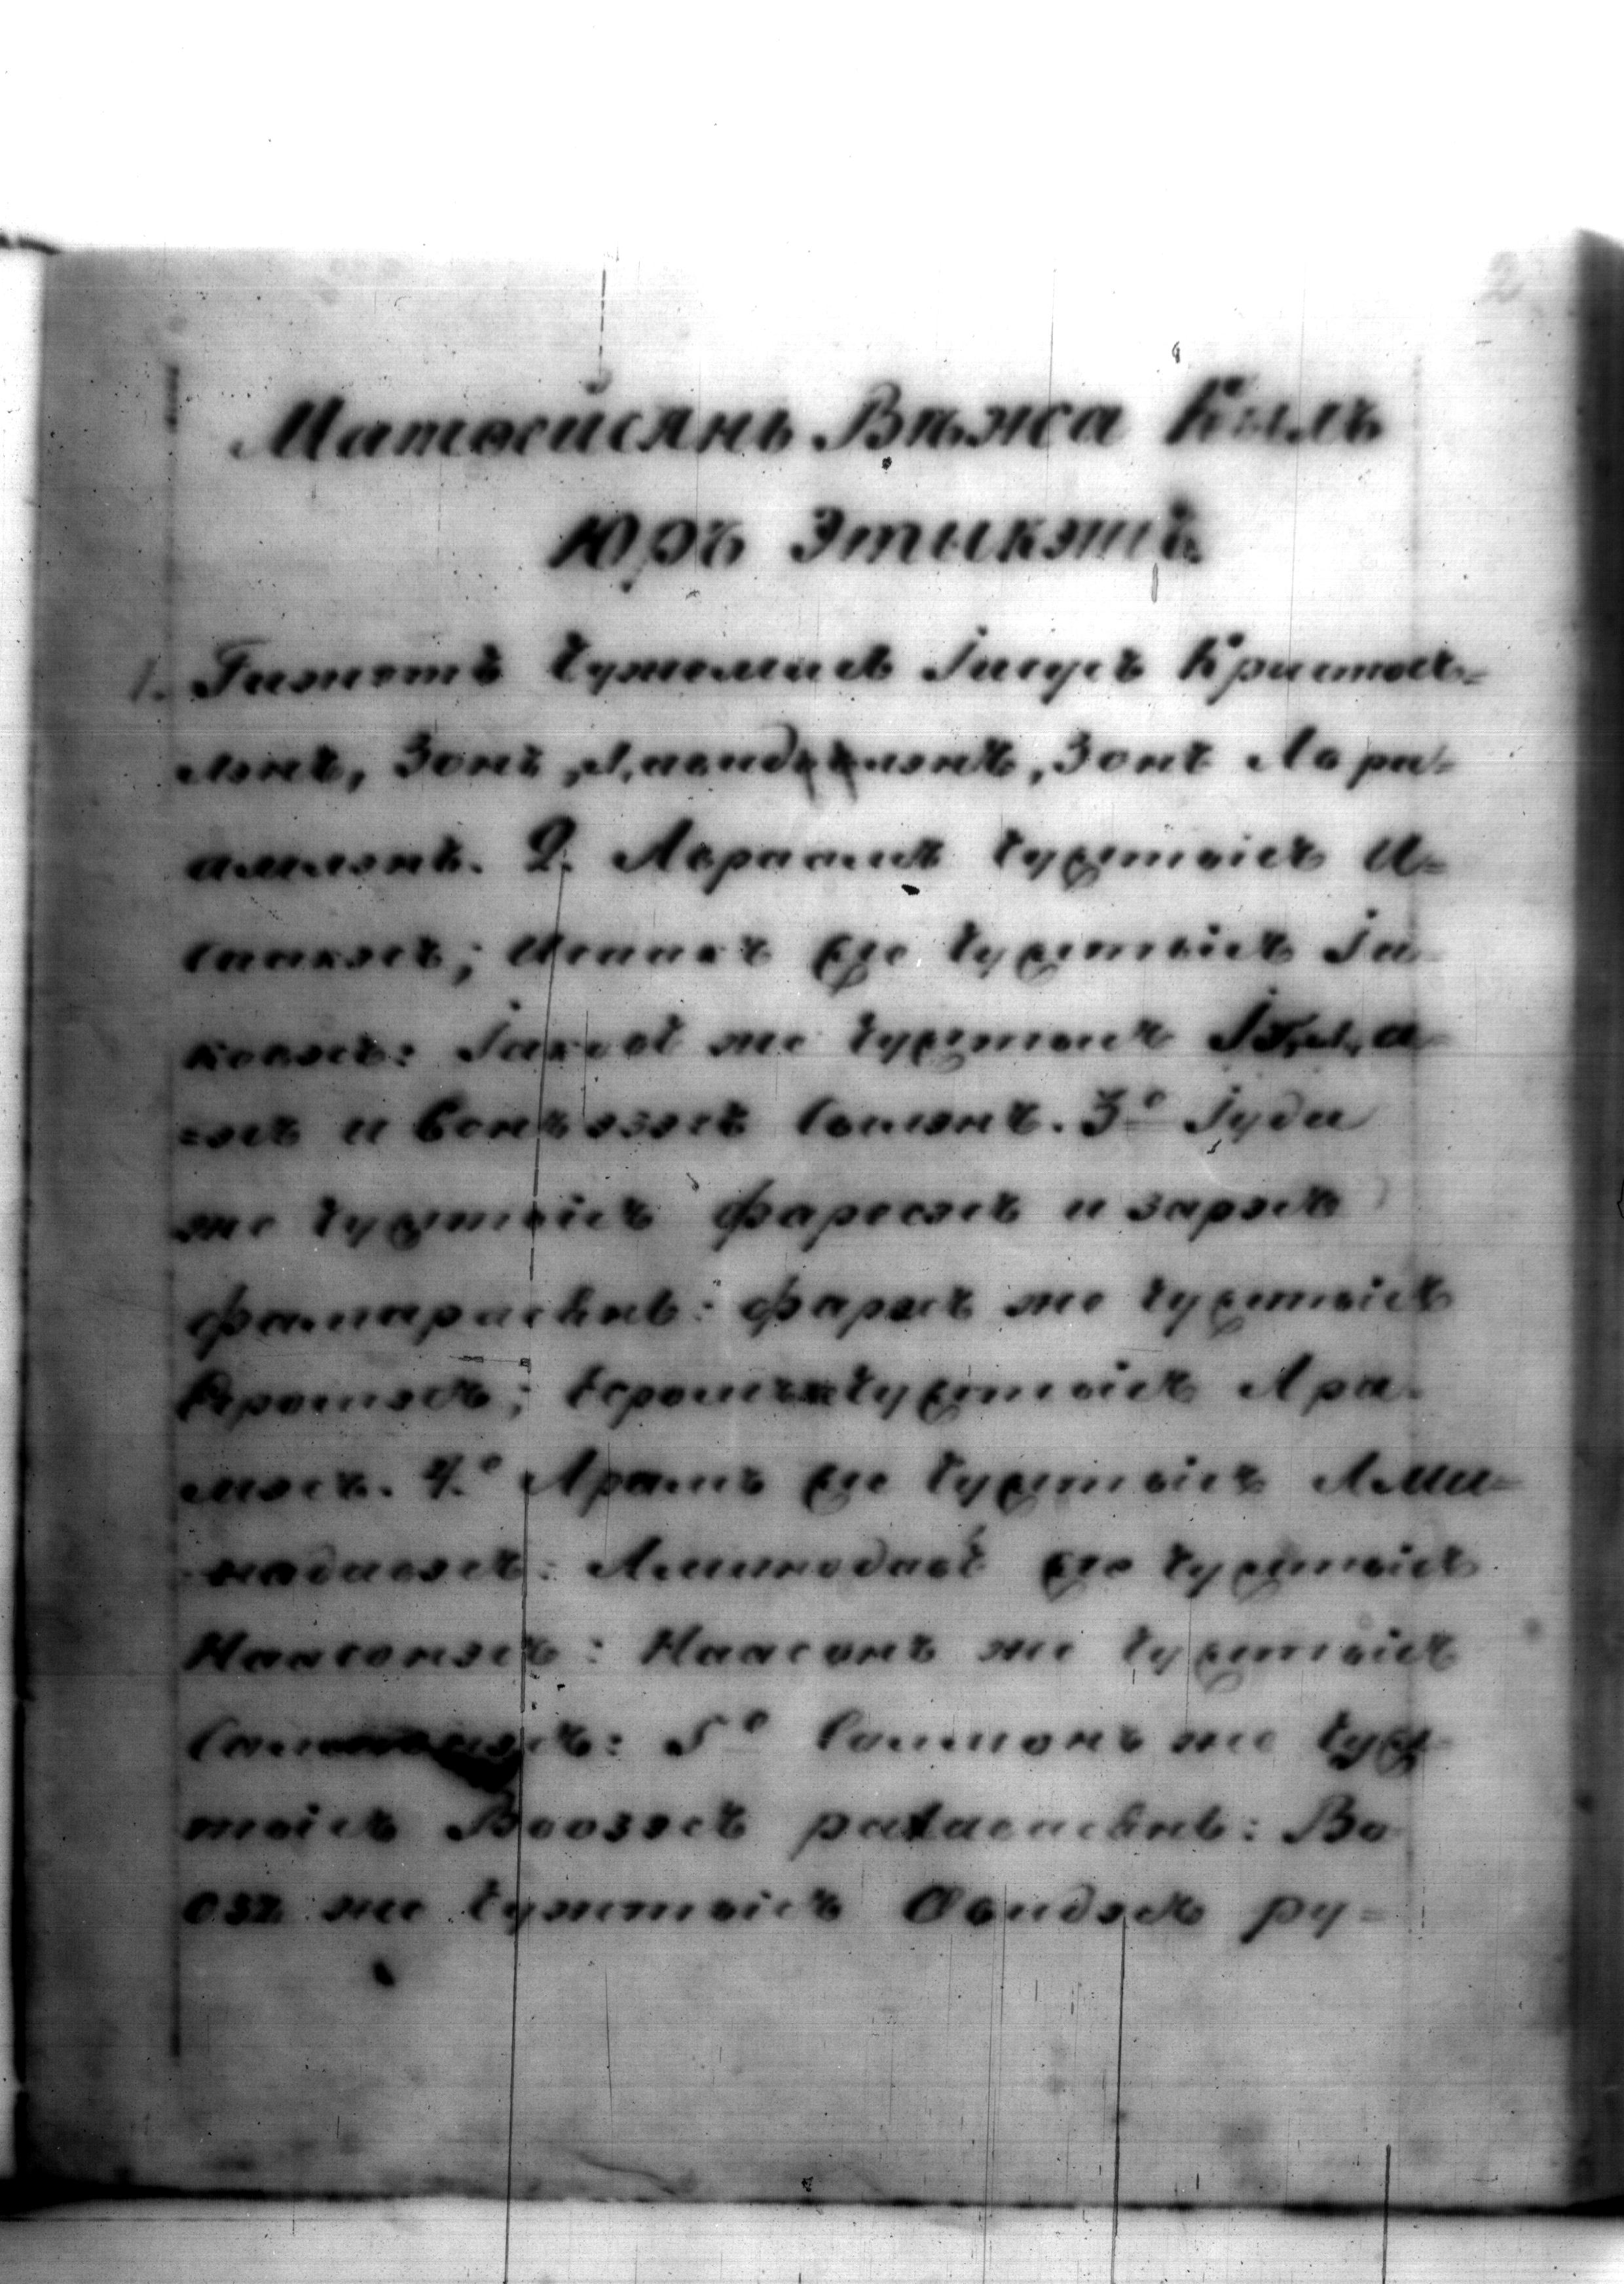 2
Матѳейсянь Вѣжа Кылъ
Юръ Этикэтъ.
1. Гижетъ чужемысь Іисусъ Кристос=
лэнъ, Зонъ Давидлэнъ, Зонъ Авра=
амлэнъ. 2. Авраамъ чужтыісъ И=
саакэсъ; Исаакъ же чужтыісъ Іа=
ковэсъ: Іаковъ же чужтыісъ
=эсъ и вонъэзэсъ сылэнъ. 3е Іуда
же чужтыісъ Фаресэсъ и Зарэсъ
Фамарисянь: Фаресъ же чужтыісъ
Есромэсъ; Есромъ же чужтыісъ Ара=
мэсъ. 4.е Арамъ же чужтыісъ Ами=
надавэсъ: Аминодавъ же чужтыісъ
Наасонэсъ: Наасонъ же чужтыісъ
Салмонэсъ: 5е Салмонъ же чуж=
тыісъ Воозэсъ рахавасянь: Во=
озъ же чужтыісъ Овидэсъ ру=